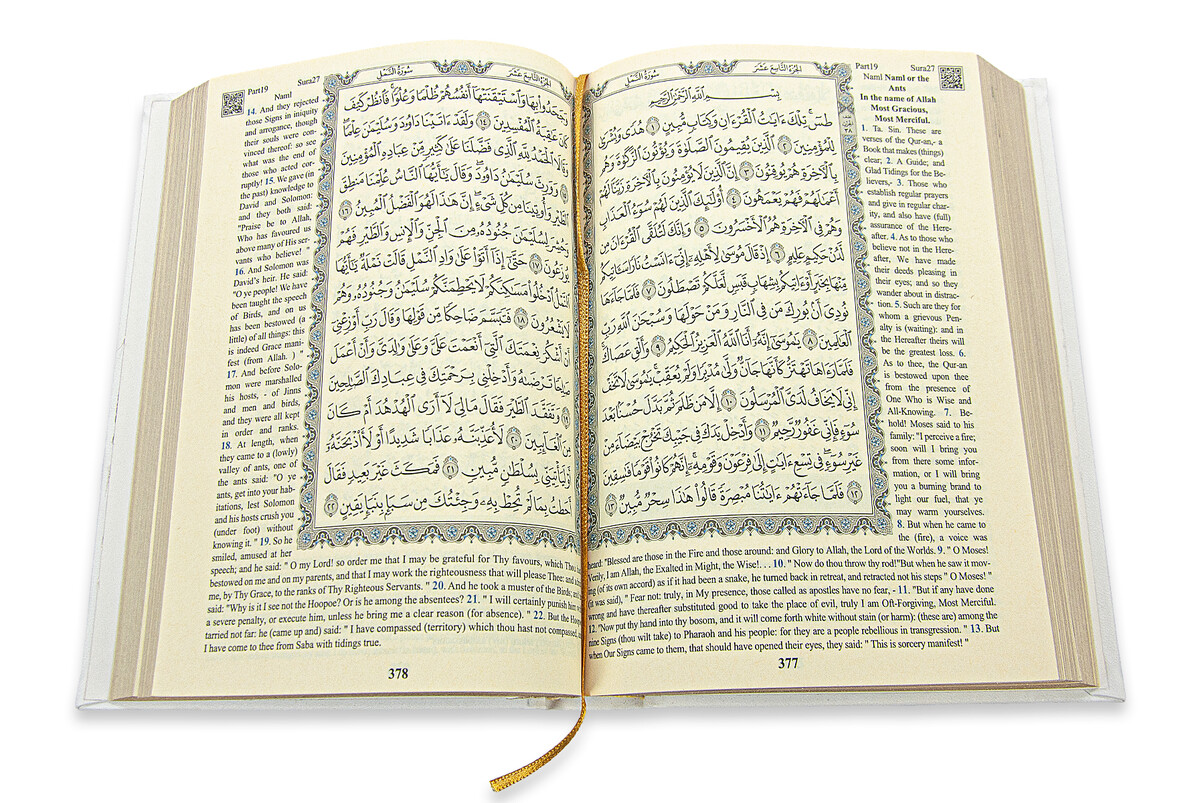 Part19 Sura27
الجُزْءُ التَّاسِعَ عَشَرَ
سُورَةُ النَّمْلِ
بِسْمِ ٱللَّهِ ٱلرَّحْمَٰنِ ٱلرَّحِيمِ
طسٓ ۚ تِلْكَ ءَايَٰتُ ٱلْقُرْءَانِ وَكِتَابٍ مُّبِينٍ ١ هُدًى وَبُشْرَىٰ
لِلْمُؤْمِنِينَ ٢ ٱلَّذِينَ يُقِيمُونَ ٱلصَّلَوٰةَ وَيُؤْتُونَ ٱلزَّكَوٰةَ وَهُم
بِٱلْءَاخِرَةِ هُمْ يُوقِنُونَ ٣ إِنَّ ٱلَّذِينَ لَا يُؤْمِنُونَ بِٱلْءَاخِرَةِ زَيَّنَّا لَهُمْ
أَعْمَٰلَهُمْ فَهُمْ يَعْمَهُونَ ٤ أُو۟لَٰٓئِكَ ٱلَّذِينَ لَهُمْ سُوٓءُ ٱلْعَذَابِ
وَهُمْ فِى ٱلْءَاخِرَةِ هُمُ ٱلْأَخْسَرُونَ ٥ وَإِنَّكَ لَتُلَقَّى ٱلْقُرْءَانَ مِن
لَّدُنْ حَكِيمٍ عَلِيمٍ ٦ إِذْ قَالَ مُوسَىٰ لِأَهْلِهِۦٓ إِنِّىٓ ءَانَسْتُ نَارًا سَـَٔاتِيكُم
مِّنْهَا بِخَبَرٍ أَوْ ءَاتِيكُم بِشِهَابٍ قَبَسٍ لَّعَلَّكُمْ تَصْطَلُونَ ٧ فَلَمَّا جَآءَهَا
نُودِىَ أَنۢ بُورِكَ مَن فِى ٱلنَّارِ وَمَنْ حَوْلَهَا وَسُبْحَٰنَ ٱللَّهِ رَبِّ
ٱلْعَٰلَمِينَ ٨ يَٰمُوسَىٰٓ إِنَّهُۥٓ أَنَا ٱللَّهُ ٱلْعَزِيزُ ٱلْحَكِيمُ ٩ وَأَلْقِ عَصَاكَ
فَلَمَّا رَءَاهَا تَهْتَزُّ كَأَنَّهَا جَآنٌّ وَلَّىٰ مُدْبِرًا وَلَمْ يُعَقِّبْ ۚ يَٰمُوسَىٰ لَا تَخَفْ
إِنِّى لَا يَخَافُ لَدَىَّ ٱلْمُرْسَلُونَ ١٠ إِلَّا مَن ظَلَمَ ثُمَّ بَدَّلَ حُسْنًۢا بَعْدَ
سُوٓءٍ فَإِنِّى غَفُورٌ رَّحِيمٌ ١١ وَأَدْخِلْ يَدَكَ فِى جَيْبِكَ تَخْرُجْ بَيْضَآءَ مِنْ
غَيْرِ سُوٓءٍ ۖ فِى تِسْعِ ءَايَٰتٍ إِلَىٰ فِرْعَوْنَ وَقَوْمِهِۦٓ ۚ إِنَّهُمْ كَانُوا۟ قَوْمًا فَٰسِقِينَ
١٢ فَلَمَّا جَآءَتْهُمْ ءَايَٰتُنَا مُبْصِرَةً قَالُوا۟ هَٰذَا سِحْرٌ مُّبِينٌ ١٣
Naml Naml or the
Ants
In the name of Allah
Most Gracious,
Most Merciful.
1. Ta. Sin. These are
verses of the Qur-an,- a
Book that makes (things)
clear; 2. A Guide; and
Glad Tidings for the Be-
lievers,- 3. Those who
establish regular prayers
and give in regular char-
ity, and also have (full)
assurance of the Here-
after. 4. As to those who
believe not in the Here-
after, We have made
their deeds pleasing in
their eyes; and so they
wander about in distrac-
tion. 5. Such are they for
whom a grievous Pen-
alty is (waiting): and in
the Hereafter theirs will
be the greatest loss. 6.
As to thee, the Qur-an
is bestowed upon thee
from the presence of
One Who is Wise and
All-Knowing. 7. Be-
hold! Moses said to his
family: "I perceive a fire;
soon will I bring you
from there some infor-
mation, or I will bring
you a burning brand to
light our fuel, that ye
may warm yourselves.
8. But when he came to
the (fire), a voice was
heard: "Blessed are those in the Fire and those around: and Glory to Allah, the Lord of the Worlds. 9. " O Moses!
Verily, I am Allah, the Exalted in Might, the Wise!. . . 10. " Now do thou throw thy rod!"But when he saw it mov-
ing (of its own accord) as if it had been a snake, he turned back in retreat, and retracted not his steps " O Moses! "
(it was said), " Fear not: truly, in My presence, those called as apostles have no fear, - 11. "But if any have done
wrong and have thereafter substituted good to take the place of evil, truly I am Oft-Forgiving, Most Merciful.
12. "Now put thy hand into thy bosom, and it will come forth white without stain (or harm): (these are) among the
nine Signs (thou wilt take) to Pharaoh and his people: for they are a people rebellious in transgression. " 13. But
when Our Signs came to them, that should have opened their eyes, they said: " This is sorcery manifest! "
377
Part19 Sura27
الجُزْءُ التَّاسِعَ عَشَرَ
سُورَةُ النَّمْلِ
وَجَحَدُوا۟ بِهَا وَٱسْتَيْقَنَتْهَآ أَنفُسُهُمْ ظُلْمًا وَعُلُوًّا ۚ فَٱنظُرْ كَيْفَ
كَانَ عَٰقِبَةُ ٱلْمُفْسِدِينَ ١٤ وَلَقَدْ ءَاتَيْنَا دَاوُۥدَ وَسُلَيْمَٰنَ عِلْمًا
وَقَالَا ٱلْحَمْدُ لِلَّهِ ٱلَّذِى فَضَّلَنَا عَلَىٰ كَثِيرٍ مِّنْ عِبَادِهِ ٱلْمُؤْمِنِينَ
وَوَرِثَ سُلَيْمَٰنُ دَاوُۥدَ ۖ وَقَالَ يَٰٓأَيُّهَا ٱلنَّاسُ عُلِّمْنَا مَنطِقَ
ٱلطَّيْرِ وَأُوتِينَا مِن كُلِّ شَىْءٍ ۖ إِنَّ هَٰذَا لَهُوَ ٱلْفَضْلُ ٱلْمُبِينُ ١٦
وَحُشِرَ لِسُلَيْمَٰنَ جُنُودُهُۥ مِنَ ٱلْجِنِّ وَٱلْإِنسِ وَٱلطَّيْرِ فَهُمْ
يُوزَعُونَ ١٧ حَتَّىٰٓ إِذَآ أَتَوْا۟ عَلَىٰ وَادِ ٱلنَّمْلِ قَالَتْ نَمْلَةٌ يَٰٓأَيُّهَا
ٱلنَّمْلُ ٱدْخُلُوا۟ مَسَٰكِنَكُمْ لَا يَحْطِمَنَّكُمْ سُلَيْمَٰنُ وَجُنُودُهُۥ وَهُمْ
لَا يَشْعُرُونَ ١٨ فَتَبَسَّمَ ضَاحِكًا مِّن قَوْلِهَا وَقَالَ رَبِّ أَوْزِعْنِىٓ
أَنْ أَشْكُرَ نِعْمَتَكَ ٱلَّتِىٓ أَنْعَمْتَ عَلَىَّ وَعَلَىٰ وَٰلِدَىَّ وَأَنْ أَعْمَلَ
صَٰلِحًا تَرْضَىٰهُ وَأَدْخِلْنِى بِرَحْمَتِكَ فِى عِبَادِكَ ٱلصَّٰلِحِينَ
١٩ وَتَفَقَّدَ ٱلطَّيْرَ فَقَالَ مَا لِىَ لَآ أَرَى ٱلْهُدْهُدَ أَمْ كَانَ
مِنَ ٱلْغَآئِبِينَ ٢٠ لَأُعَذِّبَنَّهُۥ عَذَابًا شَدِيدًا أَوْ لَأَا۟ذْبَحَنَّهُۥٓ
أَوْ لَيَأْتِيَنِّى بِسُلْطَٰنٍ مُّبِينٍ ٢١ فَمَكَثَ غَيْرَ بَعِيدٍ فَقَالَ
أَحَطتُ بِمَا لَمْ تُحِطْ بِهِۦ وَجِئْتُكَ مِن سَبَإٍۭ بِنَبَإٍ يَقِينٍ ٢٢
Naml
14. And they rejected
those Signs in iniquity
and arrogance, though
their souls were con-
vinced thereof: so see
what was the end of
those who acted cor-
ruptly! 15. We gave (in
the past) knowledge to
David and Solomon:
and they both said:
"Praise be to Allah,
Who has favoured us
above many of His ser-
vants who believe! "
16. And Solomon was
David's heir. He said:
"O ye people! We have
been taught the speech
of Birds, and on us
has been bestowed (a
little) of all things: this
is indeed Grace mani-
fest (from Allah. ) "
17. And before Solo-
mon were marshalled
his hosts, - of Jinns
and men and birds,
and they were all kept
in order and ranks.
18. At length, when
they came to a (lowly)
valley of ants, one of
the ants said: "O ye
ants, get into your hab-
itations, lest Solomon
and his hosts crush you
(under foot) without
knowing it. " 19. So he
smiled, amused at her
speech; and he said: " O my Lord! so order me that I may be grateful for Thy favours, which Thou
bestowed on me and on my parents, and that I may work the righteousness that will please Thee: and
me, by Thy Grace, to the ranks of Thy Righteous Servants. " 20. And he took a muster of the Birds; and
said: "Why is it I see not the Hoopoe? Or is he among the absentees? 21. " I will certainly punish him
a severe penalty, or execute him, unless he bring me a clear reason (for absence). " 22. But the
tarried not far: he (came up and) said: " I have compassed (territory) which thou hast not compassed,
I have come to thee from Saba with tidings true.
378